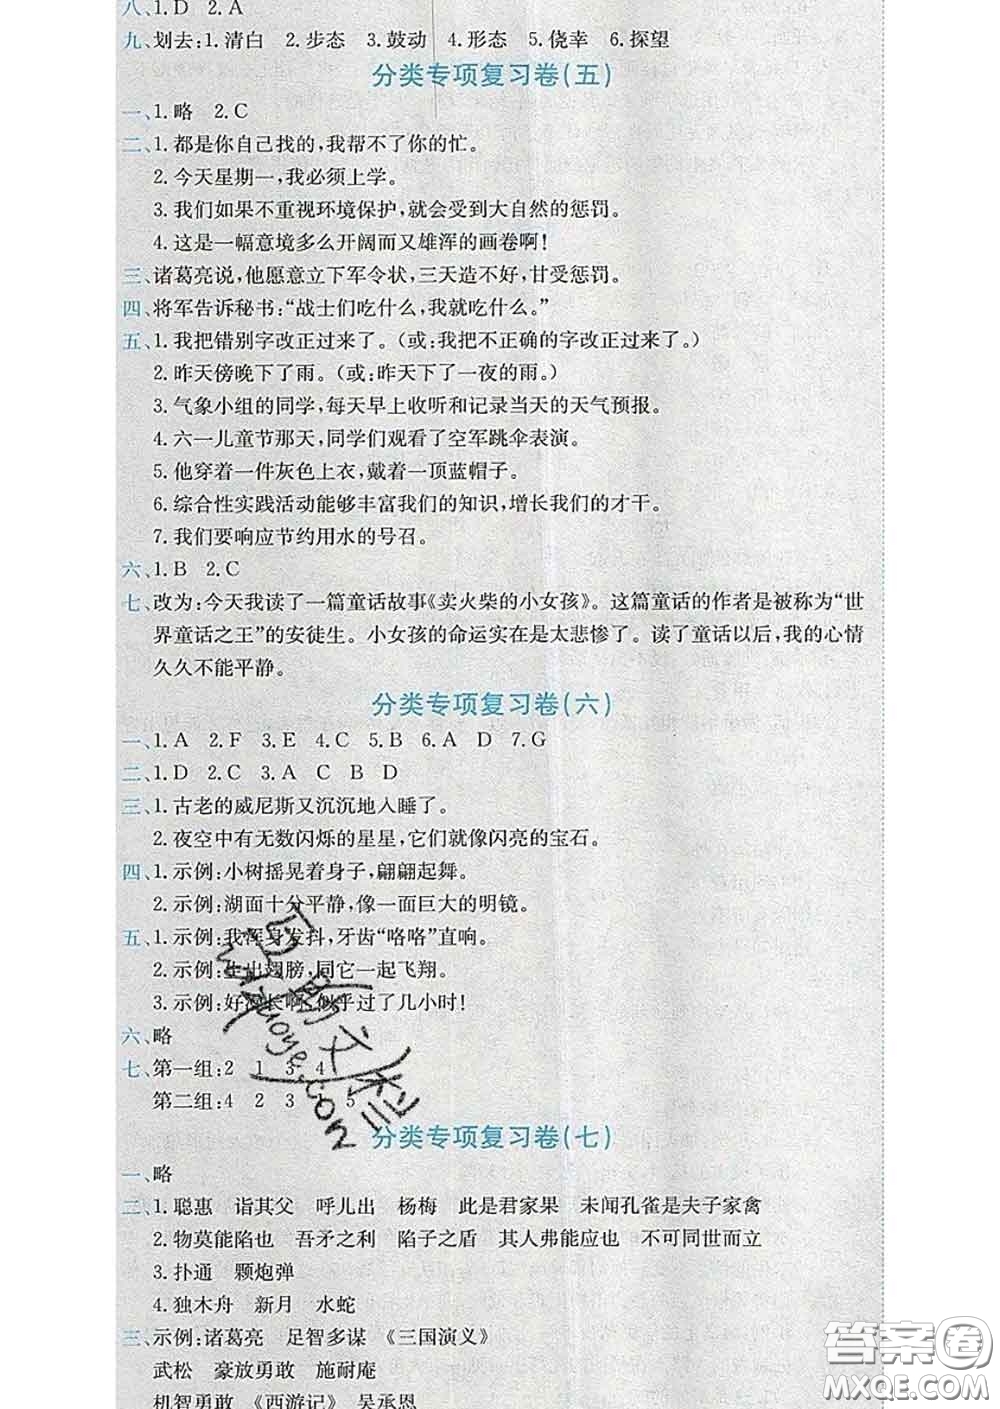 八、1. D  2. A
九、划去:1. 清白  2. 步态  3. 鼓动  4. 形态  5. 侥幸  6. 探望
分类专项复习卷(五)
一、1. 略  2. C
二、1. 都是你自己找的,我帮不了你的忙。
2. 今天星期一,我必须上学。
3. 我们如果不重视环境保护,就会受到大自然的惩罚。
4. 这是一幅意境多么开阔而又雄浑的画卷啊!
三、诸葛亮说,他愿意立下军令状,三天造不好,甘受惩罚。
四、将军告诉秘书:“战士们吃什么,我就吃什么。”
五、1. 我把错别字改正过来了。(或:我把不正确的字改正过来了。)
2. 昨天傍晚下了雨。(或:昨天下了一夜的雨。)
3. 气象小组的同学,每天早上收听和记录当天的天气预报。
4. 六一儿童节那天,同学们观看了空军跳伞表演。
5. 他穿着一件灰色上衣,戴着一顶蓝帽子。
6. 综合性实践活动能够丰富我们的知识,增长我们的才干。
7. 我们要响应节约用水的号召。
六、1. B  2. C
七、改为:今天我读了一篇童话故事《卖火柴的小女孩》。这篇童话的作者是被称为“世
界童话之王”的安徒生。小女孩的命运实在是太悲惨了。读了童话以后,我的心情
久久不能平静。
分类专项复习卷(六)
一、1. A  2. F  3. E  4. C  5. B  6. A  D  7. G
二、1. D  2. C  3. A  C  B  D
三、1. 古老的威尼斯又沉沉地入睡了。
2. 夜空中有无数闪烁的星星,它们就像闪亮的宝石。
四、1. 示例:小树摇晃着身子,翩翩起舞。
2. 示例:湖面十分平静,像一面巨大的明镜。
五、1. 示例:我浑身发抖,牙齿“咯咯”直响。
2. 示例:生出翅膀,同它一起飞翔。
3. 示例:好漫长啊,似乎过了几小时!
六、略
七、第一组:2  1  3  4
第二组:4  2  3  1  5
分类专项复习卷(七)
一、略
二、1. 聪惠  诣其父  呼儿出  杨梅  此是君家果  未闻孔雀是夫子家禽
2. 物莫能陷也  吾矛之利  陷子之盾  其人弗能应也  不可同世而立
3. 扑通  颗炮弹
4. 独木舟  新月  水蛇
三、示例:诸葛亮  足智多谋  《三国演义》
武松  豪放勇敢  施耐庵
机智勇敢  《西游记》  吴承恩
答案圈
MXQE.COM